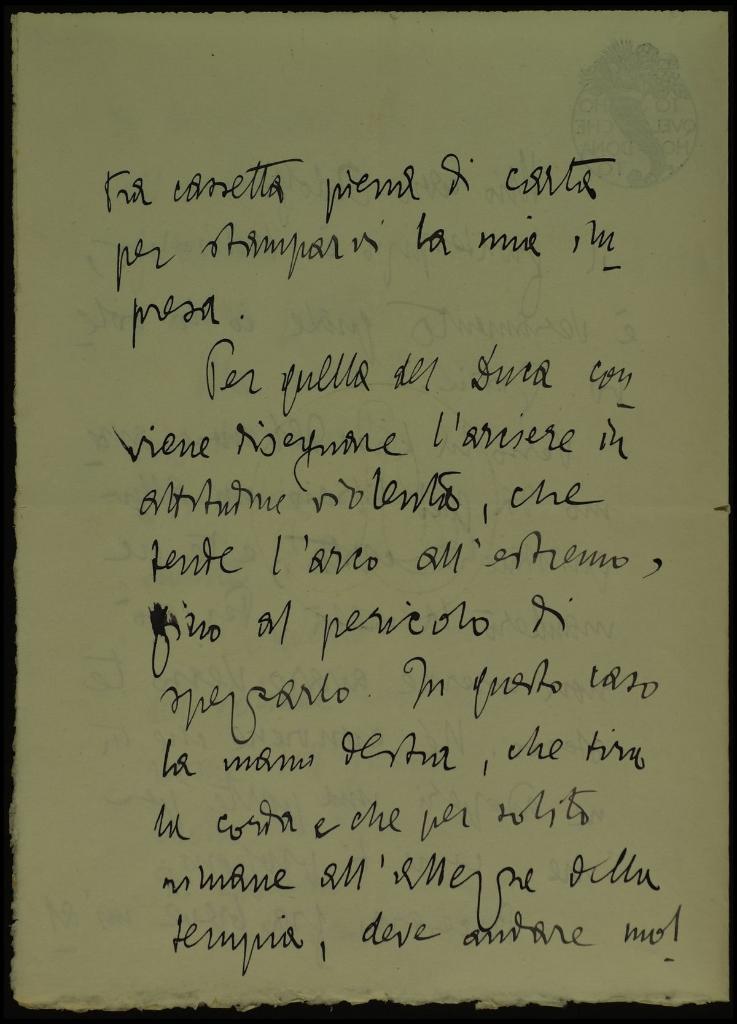 tra cassetta piena di carta
per stamparvi la mia im
presa.
Per quella del Duca con
viene disegnare l'arciere in
attitudine violenta, che
tende l'arco all'estremo,
fino al pericolo di
spezzarlo. In questo caso
la mano destra, che tira
la corda e che per solito
rimane all'altezza della
tempia, deve andare mol